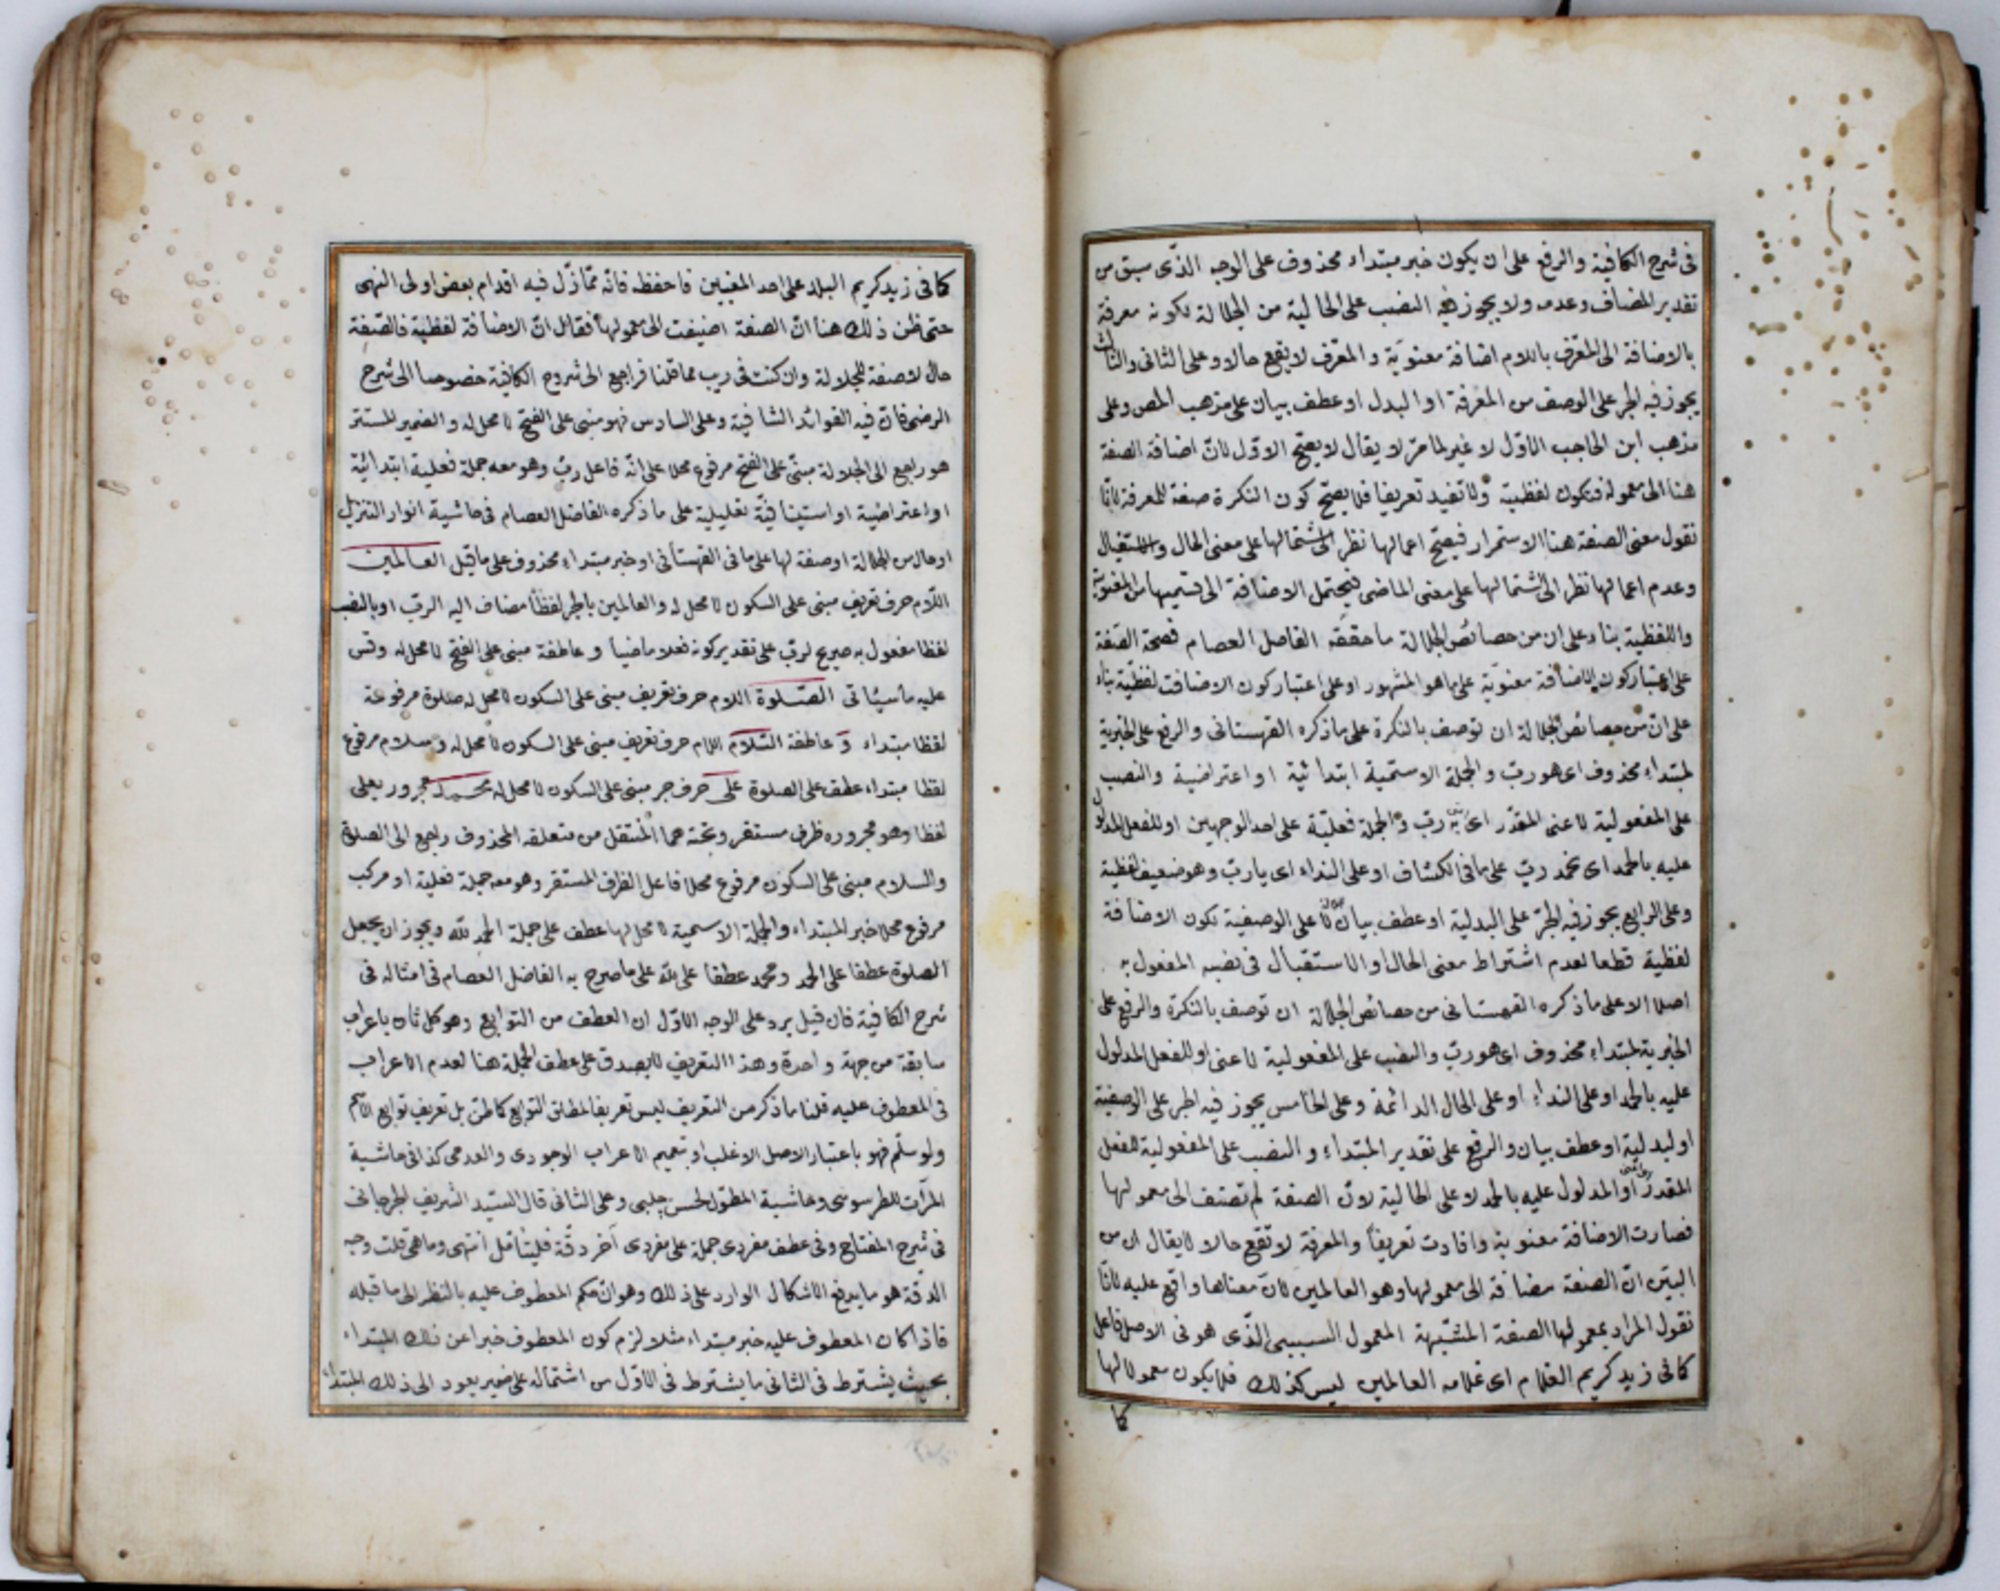 فى شرح الكافية والرفع على ان يكون خبر مبتداء محذوف على الوجه الذى سبق من
تقدير المضاف وعدمه ولا يجوز فيه النصب على الحالية من الجلالة لكونه معرفة
بالاضافة الى المعرف باللام اضافة معنوية والمعرف لا يقع حالا وعلى الثانى والثالث
يجوز فيه الجر على الوصف من المعرفة او البدل او عطف بيان على مذهب المص وعلى
مذهب ابن الحاجب الاول لا غير لما مر لا يقال لا يصح الاول لان اضافة الصفة
هنا الى معموله فتكون لفظية ولا تفيد تعريفا فلا يصح كون النكرة صفة للمعرفة لانا
نقول معنى الصفة هنا الاستمرار فيصح اعمالها نظرا الى اشتمالها على معنى الحال والاستقبال
وعدم اعمالها نظرا الى اشتمالها على معنى الماضى فيحتمل الاضافة الى قسميها من المعنوية
واللفظية بناء على ان من خصائص الجلالة ما حققه الفاضل العصام فصحة الصفة
على اعتبار كون الاضافة معنوية على ما هو المشهور او على اعتبار كون الاضافت لفظية بناء
على ان من خصائص الجلالة ان توصف بالنكرة على ما ذكره القهستانى والرفع على الخبرية
لمبتداء محذوف اى هو رب والجملة الاسمية ابتدائية او اعتراضية والنصب
على المفعولية لاعنى المقدر اى رب والجملة فعلية على احد الوجهين او للفعل المدلول
عليه بالحمد اى نحمد رب على ما فى الكشاف او على النداء اى يا رب وهو ضعيف لفظية
وعلى الرابع يجوز فيه الجر على البدلية او عطف بيان لا على الوصفية لكون الاضافة
لفظية قطعا لعدم اشتراط معنى الحال او الاستقبال فى نصبه المفعول به
اصلا الا على ما ذكره القهستانى من خصائص الجلالة ان توصف بالنكرة والرفع على
الخبرية لمبتداء محذوف اى هو رب والنصب على المفعولية لاعنى او للفعل المدلول
عليه بالحمد او على النداء او على الحال الدائمة وعلى الخامس يجوز فيه الجر على الوصفية
او لبدلية او عطف بيان والرفع على تقدير المبتداء والنصب على المفعولية للفعل
المقدر او المدلول عليه بالحمد لا على الحالية لان الصفة لم تضف الى معمولها
فصارت الاضافة معنوية وافادت تعريفا والمعرفة لا تقع حالا لا يقال ان من
البين ان الصفة مضافة الى معمولها وهو العالمين لان معناها واقع عليه لانا
نقول المراد بمعمولها الصفة المشبهة المعمول السببى الذى هو فى الاصل فاعل
كما فى زيد كريم الغلام اى غلامه العالمين ليس كذلك فلا يكون معمولا لها
كما
كما فى زيد كريم البلد على احد المعنيين فاحفظ فانه مما زل فيه اقدام بعض اولى النهى
حتى ظن ذلك هنا ان الصفة اضيفت الى معمولها فقال ان الاضافة لفظية فالصفة
حال لا صفة للجلالة وان كنت فى ريب مما قلنا فراجع الى شروح الكافية خصوصا الى شرح
الرضى فان فيه الفوائد الشافية وعلى السادس فهو مبنى على الفتح لا محل له والضمير المستتر
هو راجع الى الجلالة مبنى على الفتح مرفوع محلا على انه فاعل رب وهو معه جملة فعلية ابتدائية
او اعتراضية او استينافية تعليلية على ما ذكره الفاضل العصام فى حاشية انوار التنزيل
او حال من الجلالة او صفة لها على ما فى القهستانى او خبر مبتداء محذوف على ما قيل العالمين
اللام حرف تعريف مبنى على السكون لا محل له والعالمين بالجر لفظا مضاف اليه الرب او بالنصب
لفظا مفعول به صريح لرب على تقدير كونه فعلا ماضيا و عاطفة مبنى على الفتح لا محل له وقس
عليه ما سيأتى الصلوة اللام حرف تعريف مبنى على السكون لا محل له صلوة مرفوعة
لفظا مبتداء و عاطفة السلام اللام حرف تعريف مبنى على السكون لا محل له وسلام مرفوع
لفظا مبتداء عطف على الصلوة على حرف جر مبنى على السكون لا محل له محمد مجرور بعلى
لفظا وهو مجروره ظرف مستقر وتحته هما المنتقل من متعلقه المحذوف راجع الى الصلوة
والسلام مبنى على السكون مرفوع محلا فاعل الظرف المستقر وهو معه جملة فعلية او مركب
مرفوع محلا خبر المبتداء والجملة الاسمية لا محل لها عطف على جملة الحمد لله ويجوز ان يجعل
الصلوة عطفا على الحمد ومحمد عطفا على لله على ما صرح به الفاضل العصام فى امثاله فى
شرح الكافية فان قيل يرد على الوجه الاول ان العطف من التوابع وهو كل ثان باعراب
سابقة من جهة واحدة وهذا التعريف لا يصدق على عطف الجملة هنا لعدم الاعراب
فى المعطوف عليه قلنا ما ذكر من التعريف ليس تعريفا لمطلق التوابع كما ظن بل تعريف توابع الاسم
ولو سلم فهو باعتبار الاصل الاغلب او بتعميم الاعراب الوجودى والعدمى كذا فى حاشية
المرآت للطرسوسى وحاشية المطول لحسن چلبى وعلى الثانى قال السيد الشريف الجرجانى
فى شرح المفتاح وفى عطف مفردى جملة على مفردى آخر دقة فليتأمل انتهى وما هى قلت وجه
الدقة هو ما يدفع الاشكال الوارد على ذلك وهو ان حكم المعطوف عليه بالنظر الى ما قبله
فاذا كان المعطوف عليه خبر مبتداء مثلا لزم كون المعطوف خبرا عن ذلك المبتداء
بحيث يشترط فى الثانى ما يشترط فى الاول من اشتماله على ضمير يعود الى ذلك المبتداء